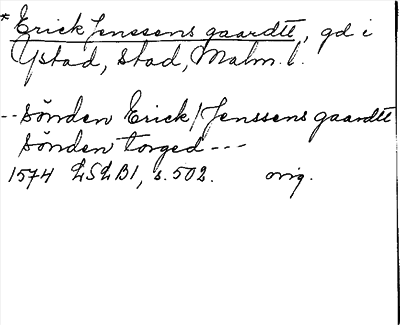 * Erick Jenssens gaardtt, gd i
Ystad, stad, Malm. l.
-- sønden Erick/Jenssens gaardtt
sønden torged ---
1574 LSLB1, s. 502. orig.